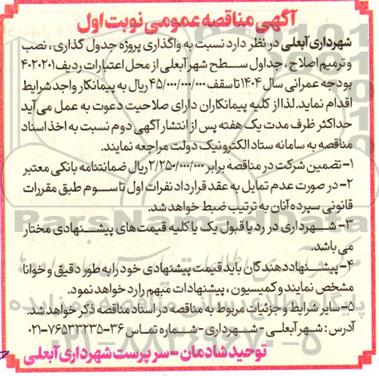 آگهی مناقصه عمومی نوبت اول
شهرداری آبعلی در نظر دارد نسبت به واگذاری پروژه جدول گذاری ، نصب
و ترمیم اصلاح ، جداول سطح شهر آبعلی از محل اعتبارات ردیف ۴۰۲۰۲۰۱
بودجه عمرانی سال ۱۴۰۴ تا سقف ۴۵/۰۰۰/۰۰۰/۰۰۰ ریال به پیمانکار واجد شرایط
اقدام نماید. لذا از کلیه پیمانکاران دارای صلاحیت دعوت به عمل می آید
حداکثر ظرف مدت یک هفته پس از انتشار آگهی دوم نسبت به اخذ اسناد
مناقصه به سامانه ستاد الکترونیک دولت مراجعه نمایند.
۱- تضمین شرکت در مناقصه برابر ۲/۲۵۰/۰۰۰/۰۰۰ ریال ضمانتنامه بانکی معتبر
۲- در صورت عدم تمایل به عقد قرارداد نفرات اول تا سوم طبق مقررات
قانونی سپرده آنان به ترتیب ضبط خواهد شد.
۳- شهرداری در رد یا قبول یک یا کلیه قیمت های پیشنهادی مختار
می باشد.
۴- پیشنهاددهندگان باید قیمت پیشنهادی خود را به طور دقیق و خوانا
مشخص نمایند و کمیسیون ، پیشنهادات مبهم را رد خواهد نمود.
۵- سایر شرایط و جزئیات مربوط به مناقصه در اسناد مناقصه ذکر خواهد شد.
آدرس : شهر آبعلی - شهرداری - شماره تماس ۳۶-۷۶۵۳۳۲۳۵-۰۲۱
توحید شادمان - سرپرست شهرداری آبعلی
ParsNamadData